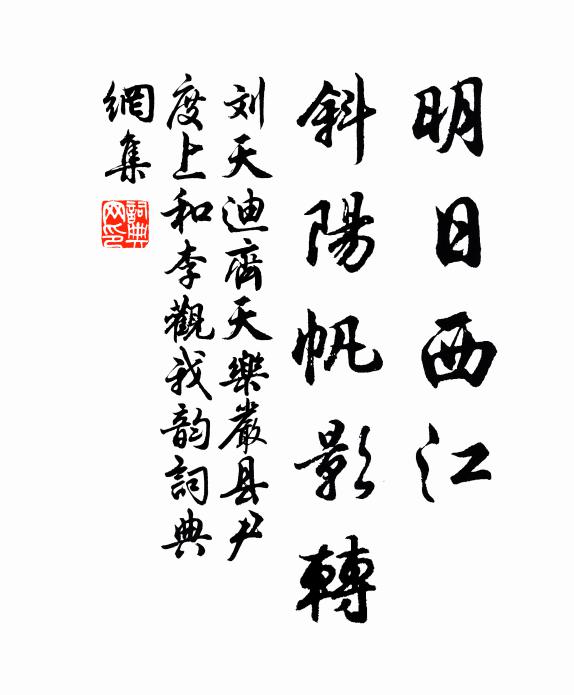 明日西江
斜陽帆影轉
刘天迪齊天樂嚴县尹
度上和李觀我韵詞典
網集
詞典網印